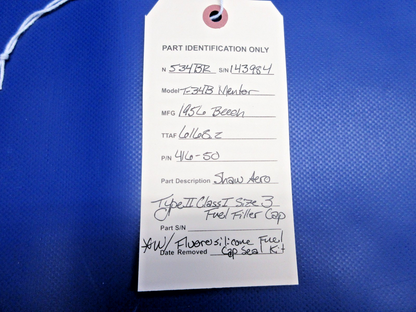 PART IDENTIFICATION ONLY
N 534BR S/N 143984
Model T-34B Mentor
MFG 1956 Beech
TTAF 6168.2
P/N 416-50
Part Description Shaw Aero
Type II Class I Size 3
Fuel Filler Cap
Part S/N
*W/ Fluorosilicone Fuel
Date Removed Cap Seal Kit